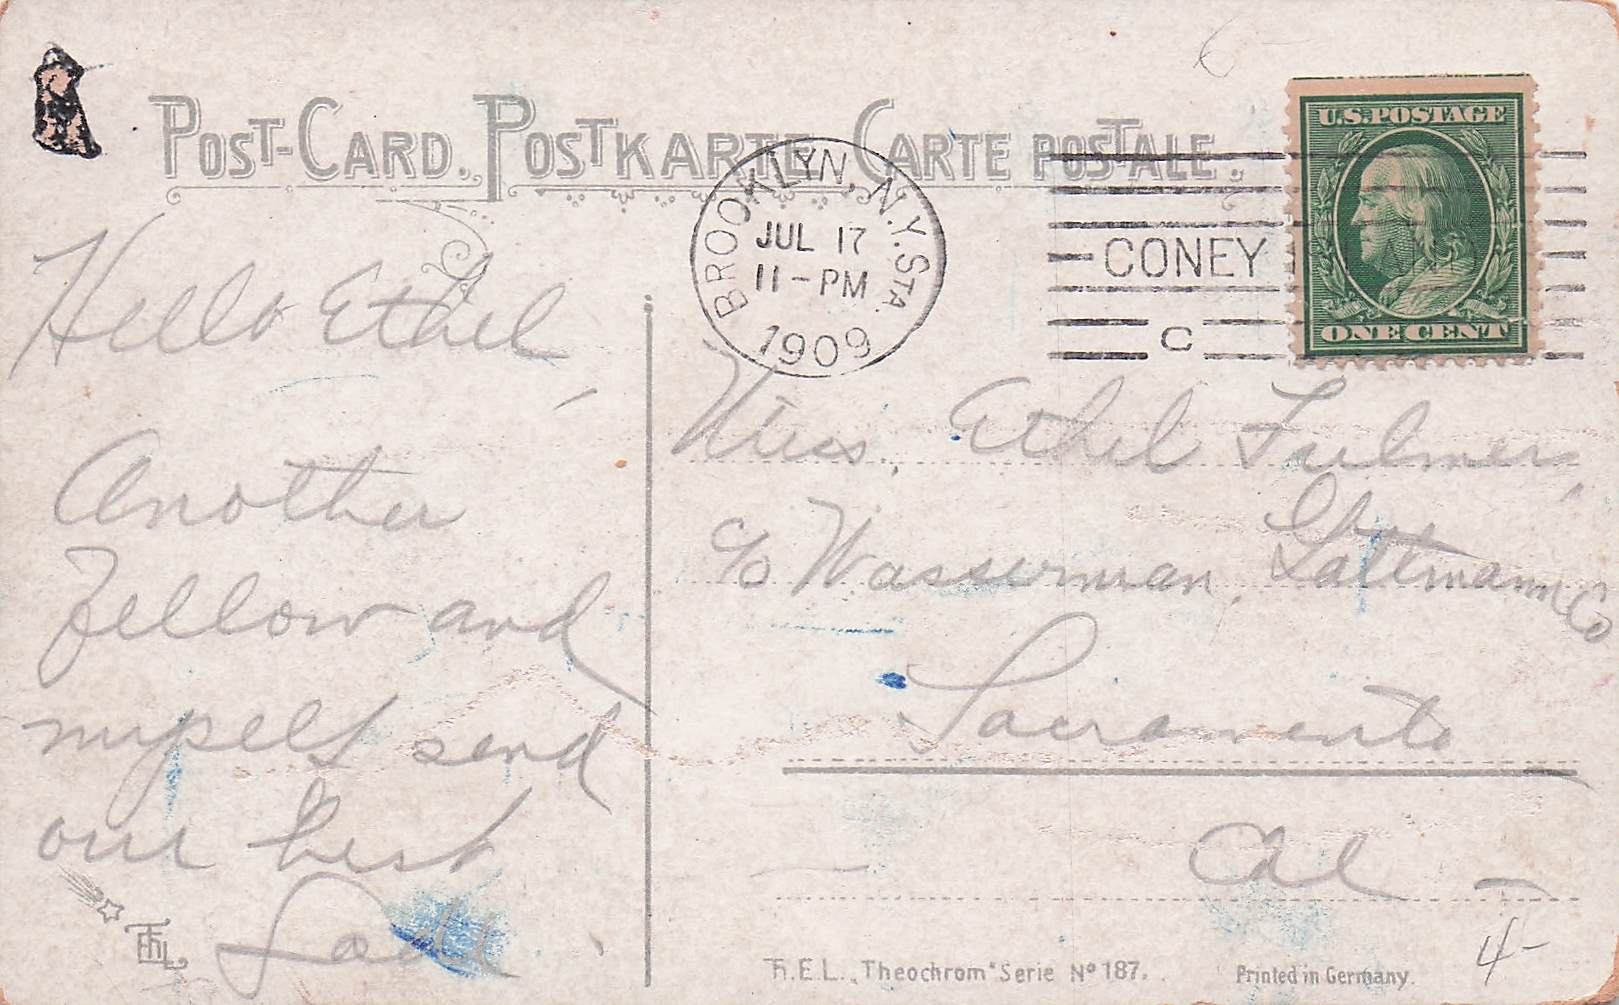 POST-CARD. POSTKARTE CARTE POSTALE.
BROOKLYN, N.Y. STA.
JUL 17
11-PM
1909
CONEY ISLAND
C
U.S.POSTAGE
ONE CENT
Hello Ethel
Another
Fellow and
myself send
our best
Miss. Ethel Fulmer,
c/o Wasserman, Co
Sacramento
Cal
4-
6-
T.E.L. „Theochrom" Serie Nº 187.
Printed in Germany.